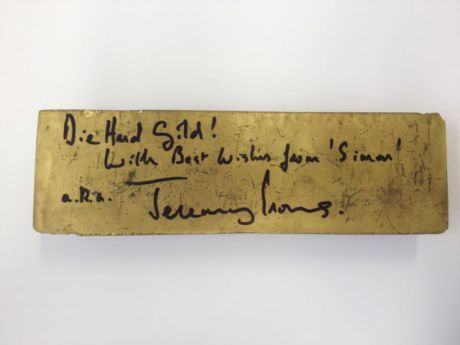 Die Hard Gold!
With Best Wishes from 'Simon'
a.k.a. Jeremy Irons.